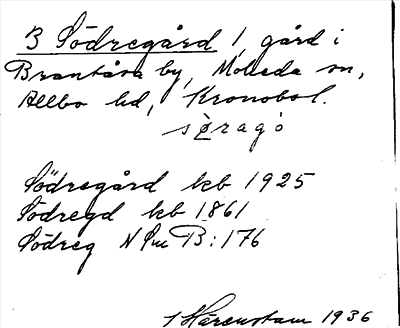 3 Södregård 1, gård i
Brantåsa by, Moheda sn,
Allbo hd, Kronobol.
sø̀ragọ
Södregård kb 1925
Södregd kb 1861
Södreg NSmB: 176
1 Härenstam 1936